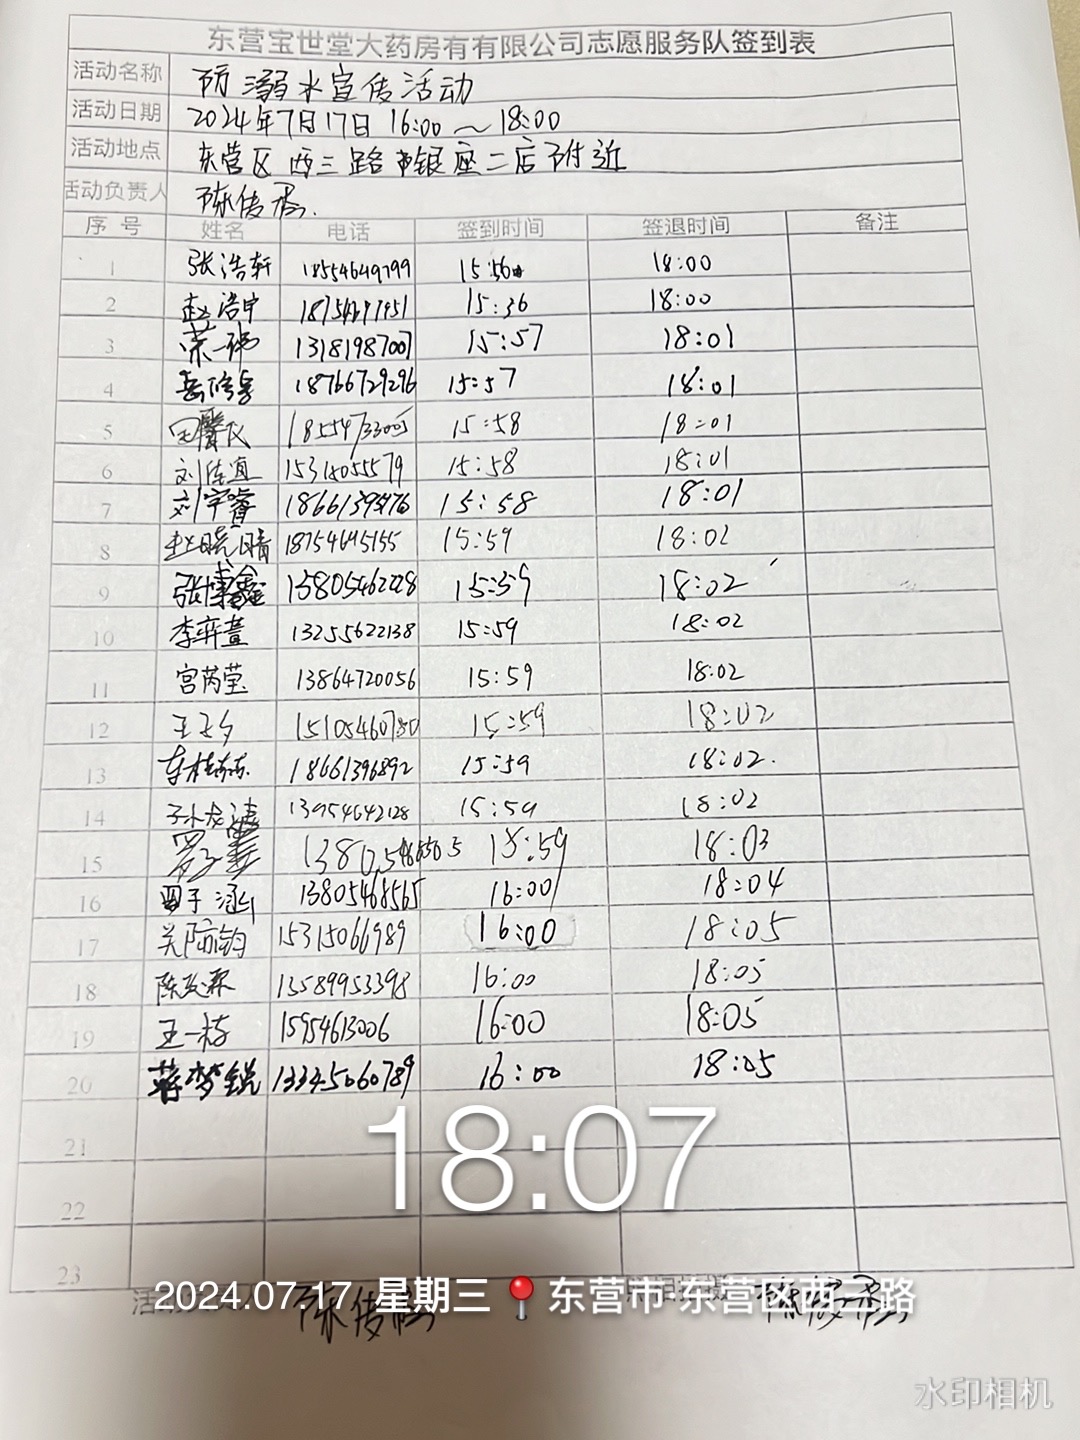 东营宝世堂大药房有有限公司志愿服务队签到表
活动名称 防溺水宣传活动
活动日期 2024年7月17日 16:00～18:00
活动地点 东营区西三路 银座二店附近
活动负责人 陈传
序号 姓名 电话 签到时间 签退时间 备注
1 张浩轩 18554649799 15:56 18:00
2 赵浩宇 15:36 18:00
3 荣一 13181987007 15:57 18:01
4 岳 18766729296 15:57 18:01
5 15:58 18:01
6 刘佳宜 15315055579 15:58 18:01
7 刘宇睿 15:58 18:01
8 赵晓晴 18754645155 15:59 18:02
9 张博鑫 13805462228 15:59 18:02
10 李弈萱 13255622138 15:59 18:02
11 宫芮莹 13864720056 15:59 18:02
12 王飞夕 15:59 18:02
13 18661396892 15:59 18:02.
14 孙龙涛 13954642128 15:59 18:02
15 15:59 18:03
16 子涵 13805468565 16:00 18:04
17 关 钧 15315066989 16:00 18:05
18 陈 13589953398 16:00 18:05
19 王一栋 15954613006 16:00 18:05
20 蒋梦锐 13345060789 16:00 18:05
21
18:07
22
23
2024.07.17 星期三 东营市·东营区西三路
陈传
水印相机